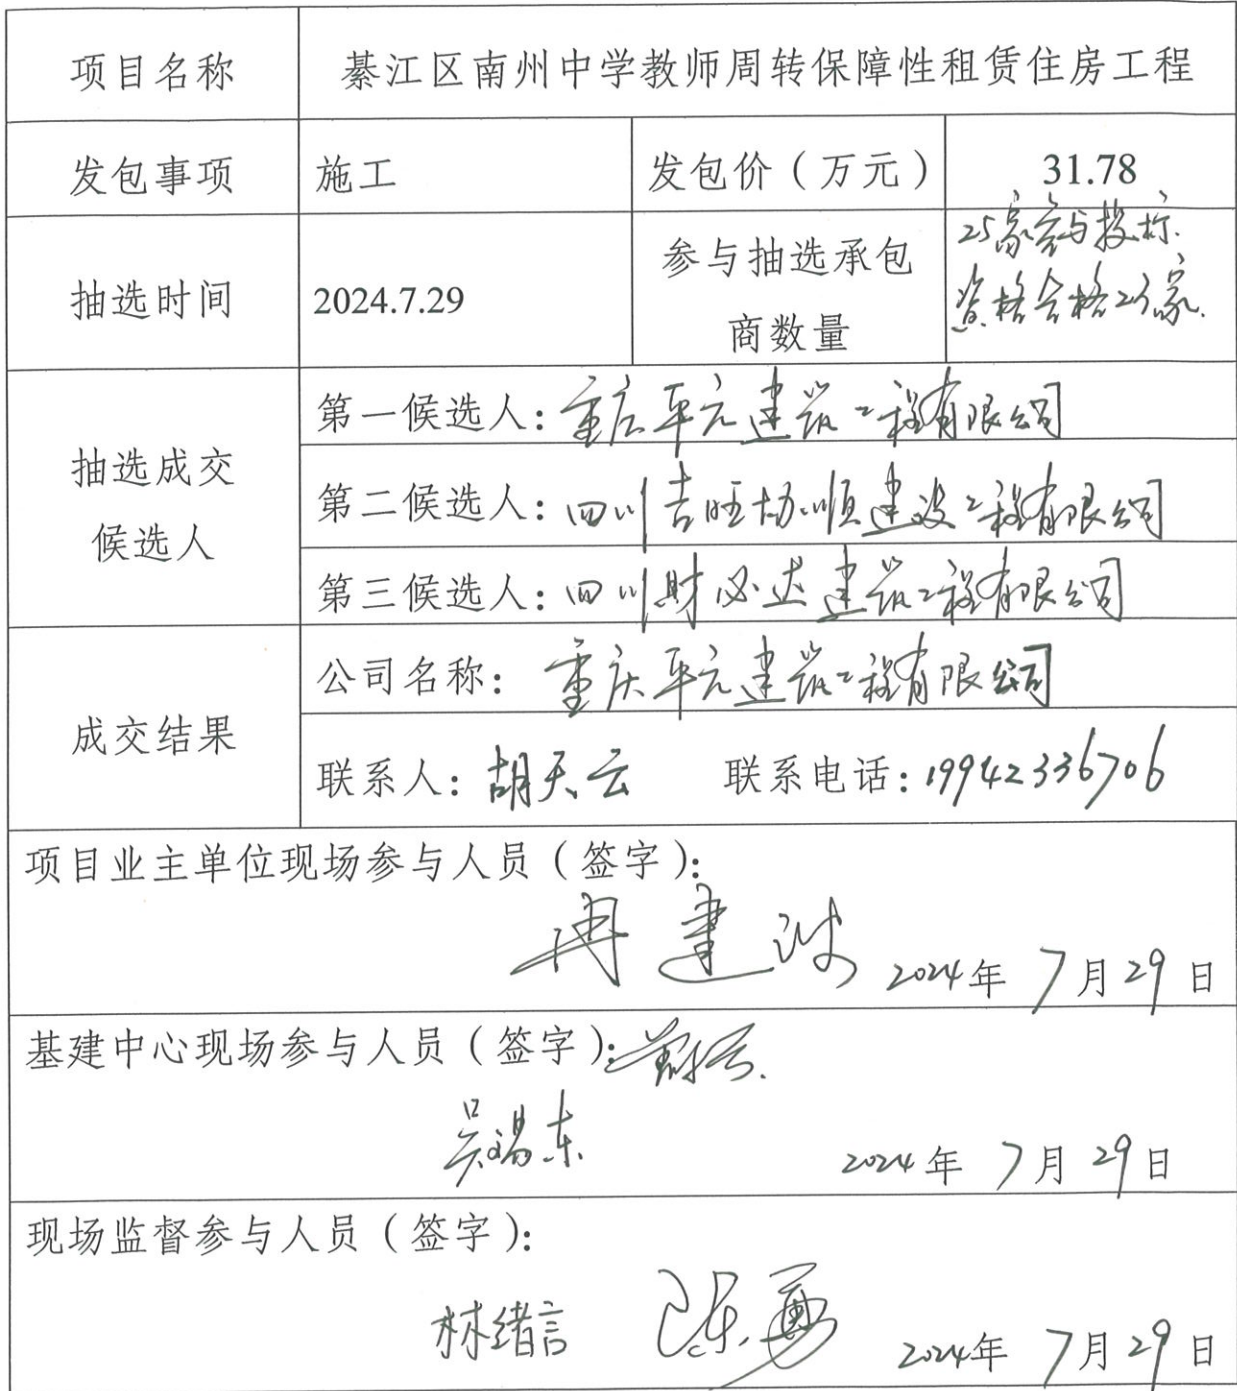 项目名称 綦江区南州中学教师周转保障性租赁住房工程
发包事项 施工 发包价（万元） 31.78
抽选时间 2024.7.29 参与抽选承包商数量 25家参与投标.
资格合格23家.
抽选成交
候选人
第一候选人：重庆平元建筑工程有限公司
第二候选人：四川吉旺协顺建设工程有限公司
第三候选人：四川财必达建筑工程有限公司
成交结果
公司名称：重庆平元建筑工程有限公司
联系人：胡天云 联系电话：19942336706
项目业主单位现场参与人员（签字）：
2024年 7月29日
基建中心现场参与人员（签字）：
吴锡东 2024年 7月29日
现场监督参与人员（签字）：
林绪言 陈勇 2024年 7月29日